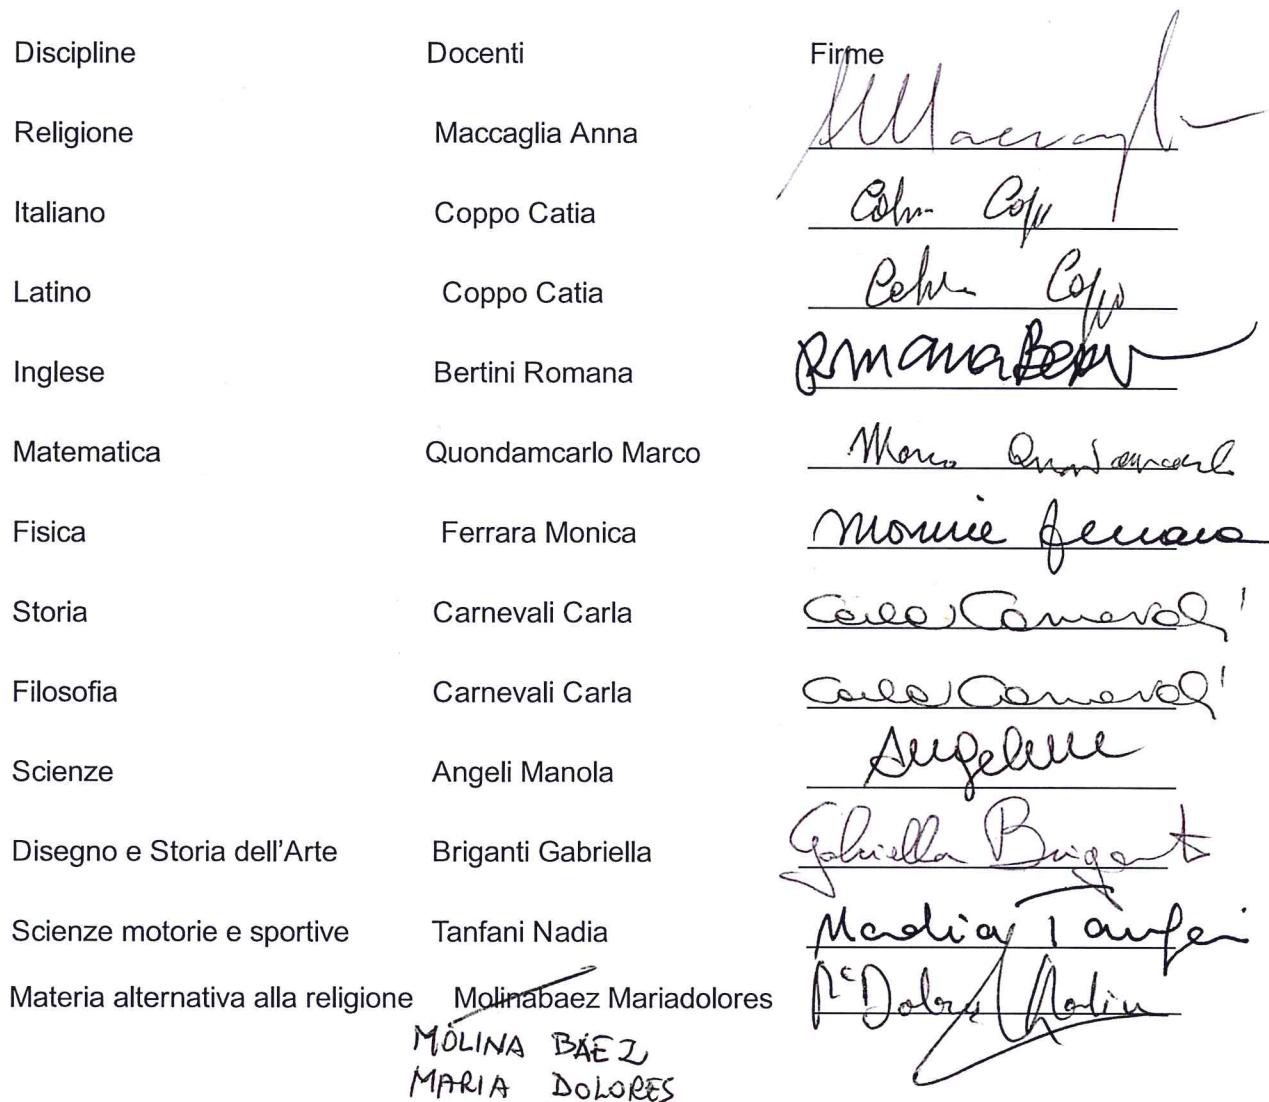 Discipline Docenti Firme
Religione Maccaglia Anna
Italiano Coppo Catia
Latino Coppo Catia
Inglese Bertini Romana Romana
Matematica Quondamcarlo Marco Marco Quondamcarlo
Fisica Ferrara Monica Monica Ferrara
Storia Carnevali Carla Carla Carnevali
Filosofia Carnevali Carla Carla Carnevali
Scienze Angeli Manola
Disegno e Storia dell'Arte Briganti Gabriella Gabriella Briganti
Scienze motorie e sportive Tanfani Nadia Nadia Tanfani
Materia alternativa alla religione Molinabaez Mariadolores Mª Dolores Molina
MOLINA BÁEZ
MARIA DOLORES